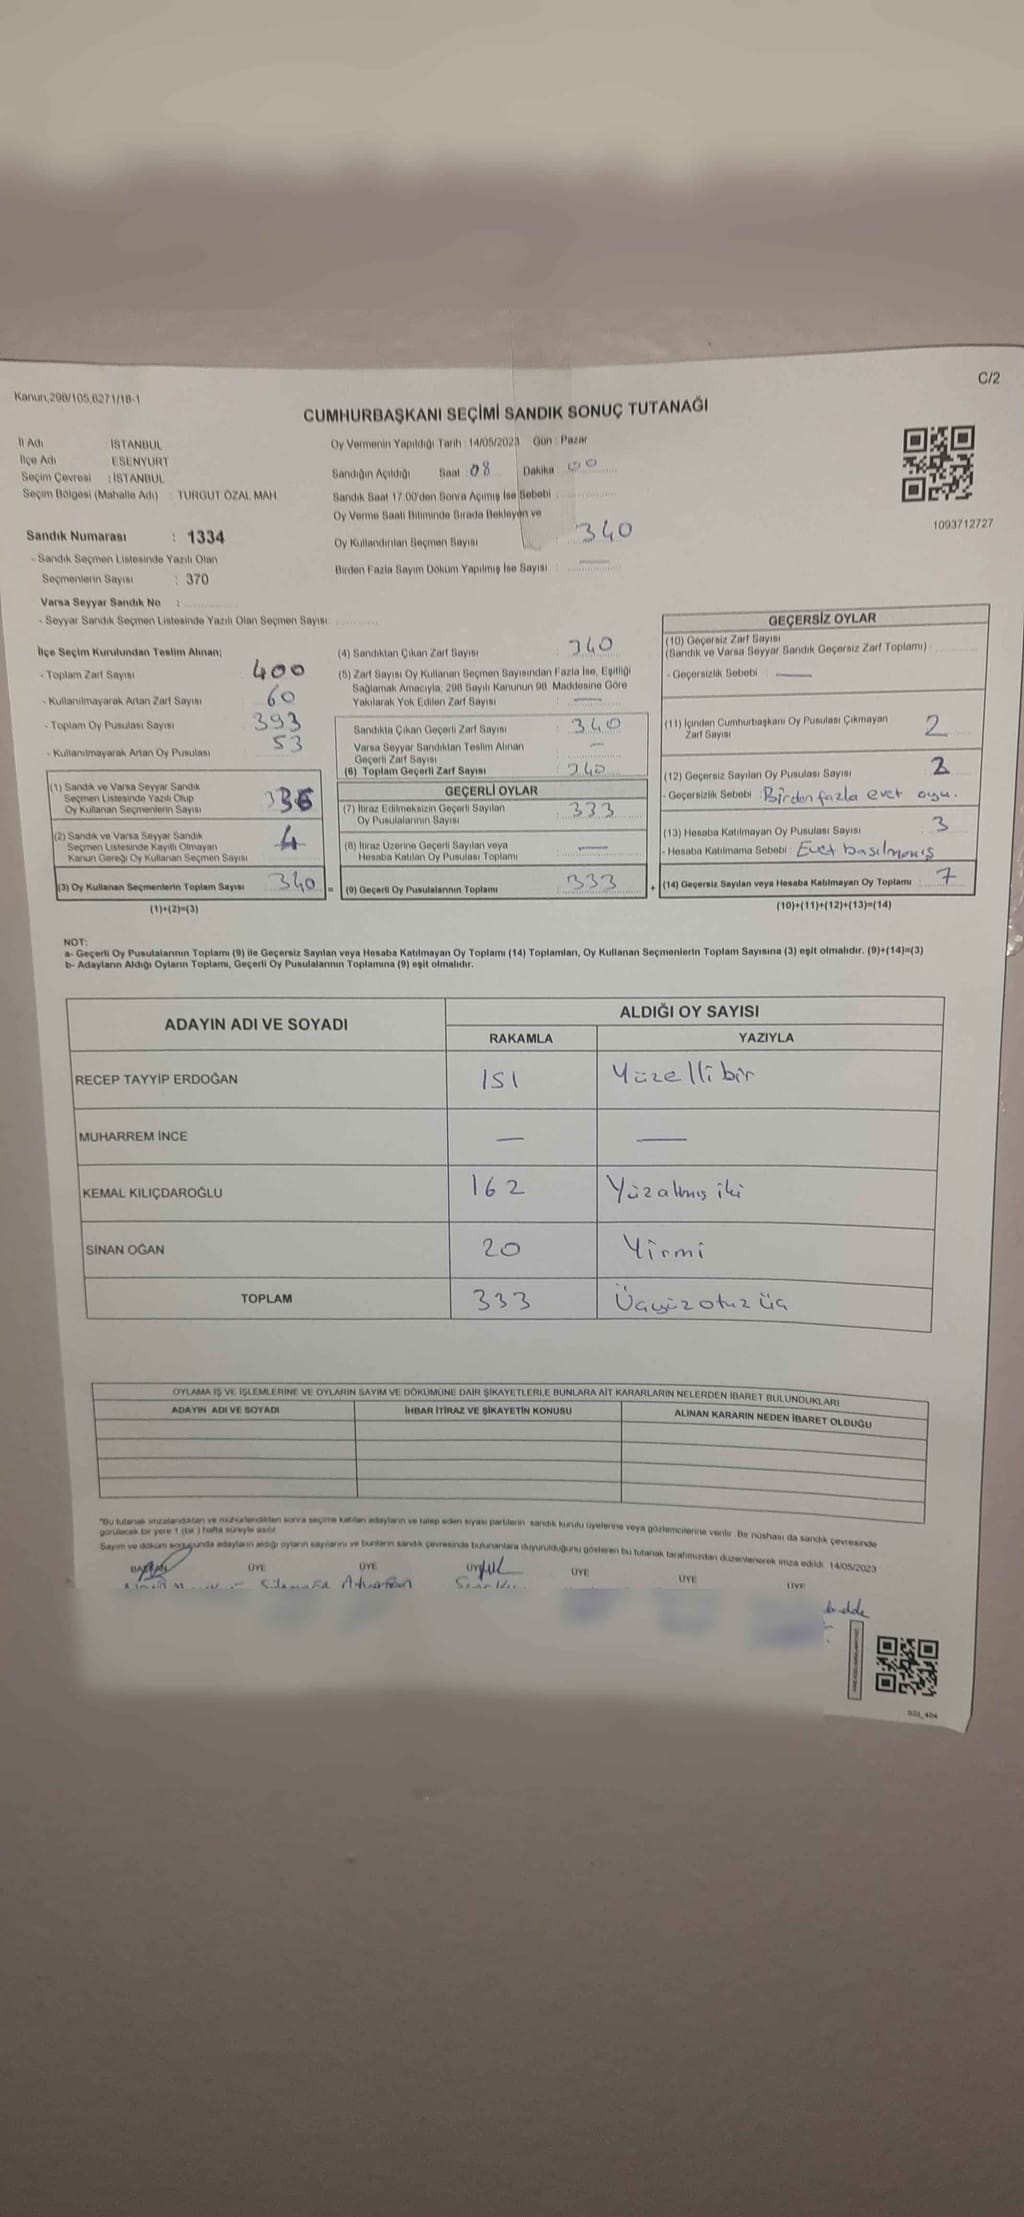 Kanun,298/105,6271/18-1
C/2
CUMHURBAŞKANI SEÇİMİ SANDIK SONUÇ TUTANAĞI
İl Adı İSTANBUL
İlçe Adı ESENYURT
Seçim Çevresi : İSTANBUL
Seçim Bölgesi (Mahalle Adı) : TURGUT ÖZAL MAH.
Oy Vermenin Yapıldığı Tarih : 14/05/2023 Gün : Pazar
Sandığın Açıldığı Saat : 08 Dakika : 00
Sandık Saat 17:00'den Sonra Açımış İse Sebebi :
Oy Verme Saati Bitiminde Sırada Bekleyen ve
Oy Kullandırılan Seçmen Sayısı : 340
Birden Fazla Sayım Döküm Yapılmış İse Sayısı : —
1093712727
Sandık Numarası : 1334
- Sandık Seçmen Listesinde Yazılı Olan
Seçmenlerin Sayısı : 370
Varsa Seyyar Sandık No :
- Seyyar Sandık Seçmen Listesinde Yazılı Olan Seçmen Sayısı:
İlçe Seçim Kurulundan Teslim Alınan;
- Toplam Zarf Sayısı 400
- Kullanılmayarak Artan Zarf Sayısı 60
- Toplam Oy Pusulası Sayısı 393
- Kullanılmayarak Artan Oy Pusulası 53
(1) Sandık ve Varsa Seyyar Sandık
Seçmen Listesinde Yazılı Olup
Oy Kullanan Seçmenlerin Sayısı 336
(2) Sandık ve Varsa Seyyar Sandık
Seçmen Listesinde Kayıtlı Olmayan
Kanun Gereği Oy Kullanan Seçmen Sayısı 4
(3) Oy Kullanan Seçmenlerin Toplam Sayısı 340 =
(1)+(2)=(3)
(4) Sandıktan Çıkan Zarf Sayısı : 340
(5) Zarf Sayısı Oy Kullanan Seçmen Sayısından Fazla İse, Eşitliği
Sağlamak Amacıyla, 298 Sayılı Kanunun 98. Maddesine Göre
Yakılarak Yok Edilen Zarf Sayısı : —
Sandıkta Çıkan Geçerli Zarf Sayısı : 340
Varsa Seyyar Sandıktan Teslim Alınan
Geçerli Zarf Sayısı : —
(6) Toplam Geçerli Zarf Sayısı : 340
GEÇERLİ OYLAR
(7) İtiraz Edilmeksizin Geçerli Sayılan
Oy Pusulalarının Sayısı : 333
(8) İtiraz Üzerine Geçerli Sayılan veya
Hesaba Katılan Oy Pusulası Toplamı : —
(9) Geçerli Oy Pusulalarının Toplamı : 333 +
GEÇERSİZ OYLAR
(10) Geçersiz Zarf Sayısı
(Sandık ve Varsa Seyyar Sandık Geçersiz Zarf Toplamı) :
- Geçersizlik Sebebi : —
(11) İçinden Cumhurbaşkanı Oy Pusulası Çıkmayan
Zarf Sayısı 2
(12) Geçersiz Sayılan Oy Pusulası Sayısı 2
- Geçersizlik Sebebi : Birden fazla evet oyu.
(13) Hesaba Katılmayan Oy Pusulası Sayısı 3
- Hesaba Katılmama Sebebi : Evet basılmamış
(14) Geçersiz Sayılan veya Hesaba Katılmayan Oy Toplamı : 7
(10)+(11)+(12)+(13)=(14)
NOT:
a- Geçerli Oy Pusulalarının Toplamı (9) ile Geçersiz Sayılan veya Hesaba Katılmayan Oy Toplamı (14) Toplamları, Oy Kullanan Seçmenlerin Toplam Sayısına (3) eşit olmalıdır. (9)+(14)=(3)
b- Adayların Aldığı Oyların Toplamı, Geçerli Oy Pusulalarının Toplamına (9) eşit olmalıdır.
ADAYIN ADI VE SOYADI ALDIĞI OY SAYISI
RAKAMLA YAZIYLA
RECEP TAYYİP ERDOĞAN 151 Yüzellibir
MUHARREM İNCE — —
KEMAL KILIÇDAROĞLU 162 Yüzaltmış iki
SİNAN OĞAN 20 Yirmi
TOPLAM 333 Üçyüzotuz üç
OYLAMA İŞ VE İŞLEMLERİNE VE OYLARIN SAYIM VE DÖKÜMÜNE DAİR ŞİKAYETLERLE BUNLARA AİT KARARLARIN NELERDEN İBARET BULUNDUKLARI
ADAYIN ADI VE SOYADI İHBAR İTİRAZ VE ŞİKAYETİN KONUSU ALINAN KARARIN NEDEN İBARET OLDUĞU
"Bu tutanak imzalandıktan ve mühürlendikten sonra seçime katılan adayların ve talep eden siyasi partilerin sandık kurulu üyelerine veya gözlemcilerine verilir. Bir nüshası da sandık çevresinde
görülecek bir yere 1 (bir) hafta süreyle asılır.
Sayım ve döküm sonucunda adayların aldığı oyların sayılarını ve bunların sandık çevresinde bulunanlara duyurulduğunu gösteren bu tutanak tarafımızdan düzenlenerek imza edildi. 14/05/2023
BAŞKAN ÜYE ÜYE ÜYE ÜYE ÜYE ÜYE